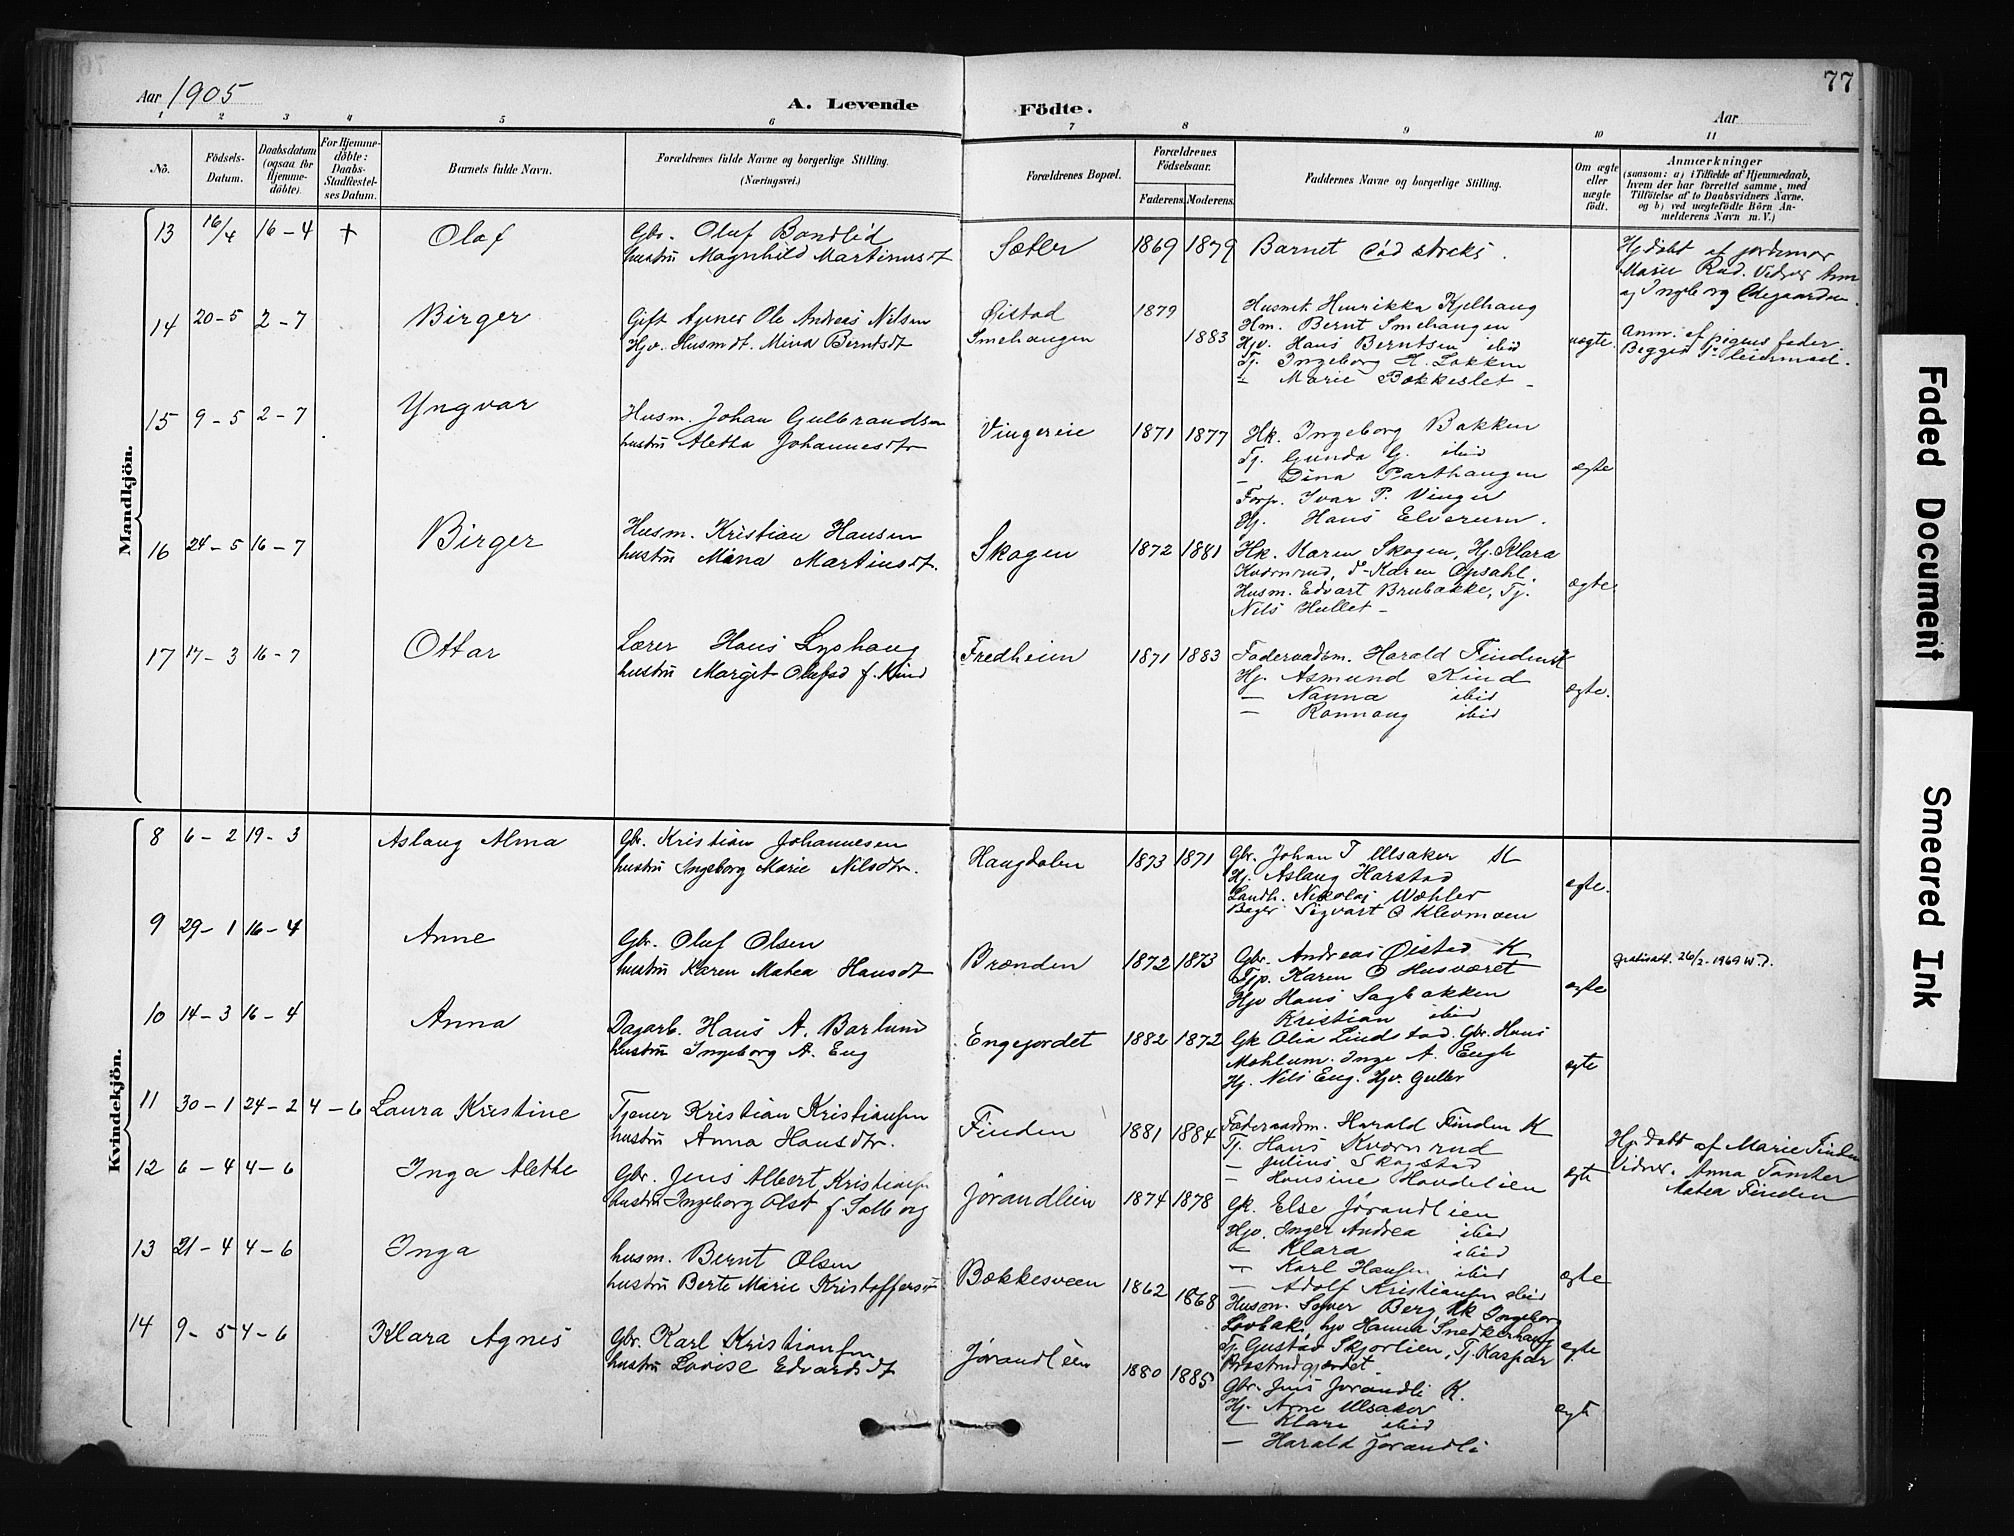 77
Aar 1905
A. Levende
Födte.
Aar
1 2 3 4 5 6 7 8 9 10 11
No.
Födsels-Datum.
Daabsdatum (ogsaa for Hjemme-döbte).
For Hjemme-döbte: Daabs-Stadfæstel-ses Datum.
Barnets fulde Navn.
Forældrenes fulde Navne og borgerlige Stilling.
(Næringsvei.)
Forældrenes Bopæl.
Forældrenes Födselsaar.
Faderens. Moderens.
Faddernes Navne og borgerlige Stilling.
Om ægte eller uægte födt.
Anmærkninger
(saasom: a) i Tilfælde af Hjemmedaab,
hvem der har forrettet samme, med
Tilföielse af to Daabsvidners Navne.
og b) ved uægtefödte Börn An-
melderens Navn m. V.)
Mandkjön.
13 16/4 16-4 + Olaf
Gbr. Oluf Bondlid
hustru Magnhild Martinusdt
Sæter 1869 1879 Barnet död straks.
Hjdöbt af jordemor
Marie Rud. Vidner
og Ingeborg Ødegaarden.
14 20-5 2-7 Birger
Gift Tjener Ole Andreas Nilsen
Hjv. Husmdt. Mina Berntsdt
Øistad 1879
Smehaugen 1883
Husmk. Henrikka Kjelhaug
Hm. Bernt Smehaugen
Hjv. Hans Berntsen ibid
Tj. Ingeborg H. Løkken
– Marie Bækkeslet –
uægte.
Anm. af pigens fader.
Begges 1ste leiermaal.
15 9-5 2-7 Yngvar
Husm. Johan Gulbrandsen
hustru Aletha Johannesdtr
Vingereie 1871 1877
Hk. Ingeborg Bakken
Tj. Gunda G. ibid
– Dina Parthaugen
Forp. Ivar P. Vinger
Hj. Hans Elverum.
ægte
16 24-5 16-7 Birger
Husm. Kristian Hansen
hustru Mina Martinsdt.
Skogen 1872 1881
Hk. Karen Skogen, Hj. Klara
Kværnrud, do Karen Opsahl.
Husm. Edvart Brubakke, Tj.
Nils Hullet –
ægte
17 17-3 16-7 Ottar
Lærer Hans Lyshaug
hustru Margit Olafsd f. Kind
Fredheim 1871 1883
Faderaadsm. Harald Finden K
Hj. Asmund Kind
– Nanna ibid
– Rannaug ibid
ægte.
Kvindekjön.
8 6-2 19-3 Aslaug Alma
Gbr. Kristian Johannesen
hustru Ingeborg Marie Nilsdtr.
Haugdalen 1873 1871
Gbr. Johan T Ulsaker K
Hj. Aslaug Harstad
Landh. Nikolai Wæhler
Bager Sigvart O Klevmoen
egte.
9 29-1 16-4 Anne
Gbr. Oluf Olsen
hustru Karen Matea Hansdt
Brænden 1872 1873
Gbr. Andreas Øistad K
Tjp. Karen O Husværet
Hjv Hans Sagbakken
Kristian ibid
ægte
26/2-1969
10 14-3 16-4 Anna
Dagarb. Hans A. Barlund
hustru Ingeborg A. Eng
Engejordet 1882 1872
Gk Olia Lindstad. Gbr. Hans
Mæhlum. Inga A. Engh
Hj. Nils Eng. Hjv. Guller
egte
11 30-1 24-2 4-6 Laura Kristine
Tjener Kristian Kristiansen
hustru Anna Hansdtr.
Finden 1881 1884
Føderaadm. Harald Finden K
Tj. Hans Kværnrud
– Julius Skogstad
– Hansine Hovdelien
egte
Hj. døbt af Marie Finden
Vidner. Anna Tømter
Matea Finden
12 6-4 4-6 Inga Alethe
Gbr. Jens Albert Kristiansen
hustru Ingeborg Olsdt f Solberg
Jørandlien 1874 1878
Gk. Else Jørandlien
Hjv. Inger Andrea ibid
– Klara ibid
– Karl Hansen ibid
– Adolf Kristiansen ibid
ægte
13 21-4 4-6 Inga
husm. Bernt Olsen
hustru Berte Marie Kristoffersdt
Bækkesveen 1862 1868
Husm. Syver Berg, Hk Ingeborg
Løvbak, hjv Hanna Snedkerhaug
Tj. Gustav Skjørlien, Tj. Kaspar
egte
14 9-5 4-6 Klara Agnes
Gbr. Karl Kristiansen
hustru Lovise Edvardsdt
Jørandlien 1880 1885
Gbr. Jens Jørandli K.
Hj. Arne Ulsaker
– Klara ibid
– Harald Jørandli
egte
Faded Document
Smeared Ink